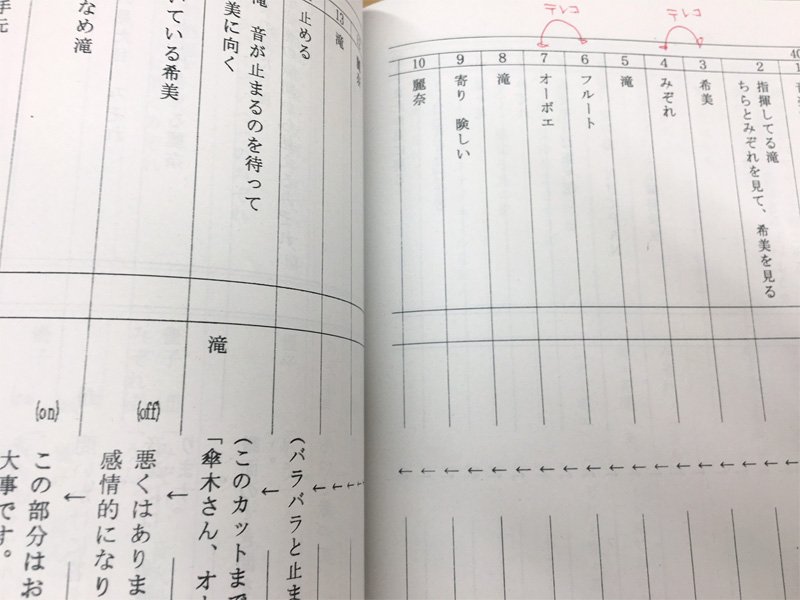 テレコ
テレコ
2
指揮してる滝
ちらとみぞれを見て、希美を見る
3
希美
4
みぞれ
5
滝
6
フルート
7
オーボエ
8
滝
9
寄り 険しい
10
麗奈
13
滝
止める
滝 音が止まるのを待って
美に向く
いている希美
なめ滝
手元
（バラバラと止ま
滝
（このカットまで
「傘木さん、オ
(off)
悪くはありま
感情的になり
(on)
この部分はお
大事です。